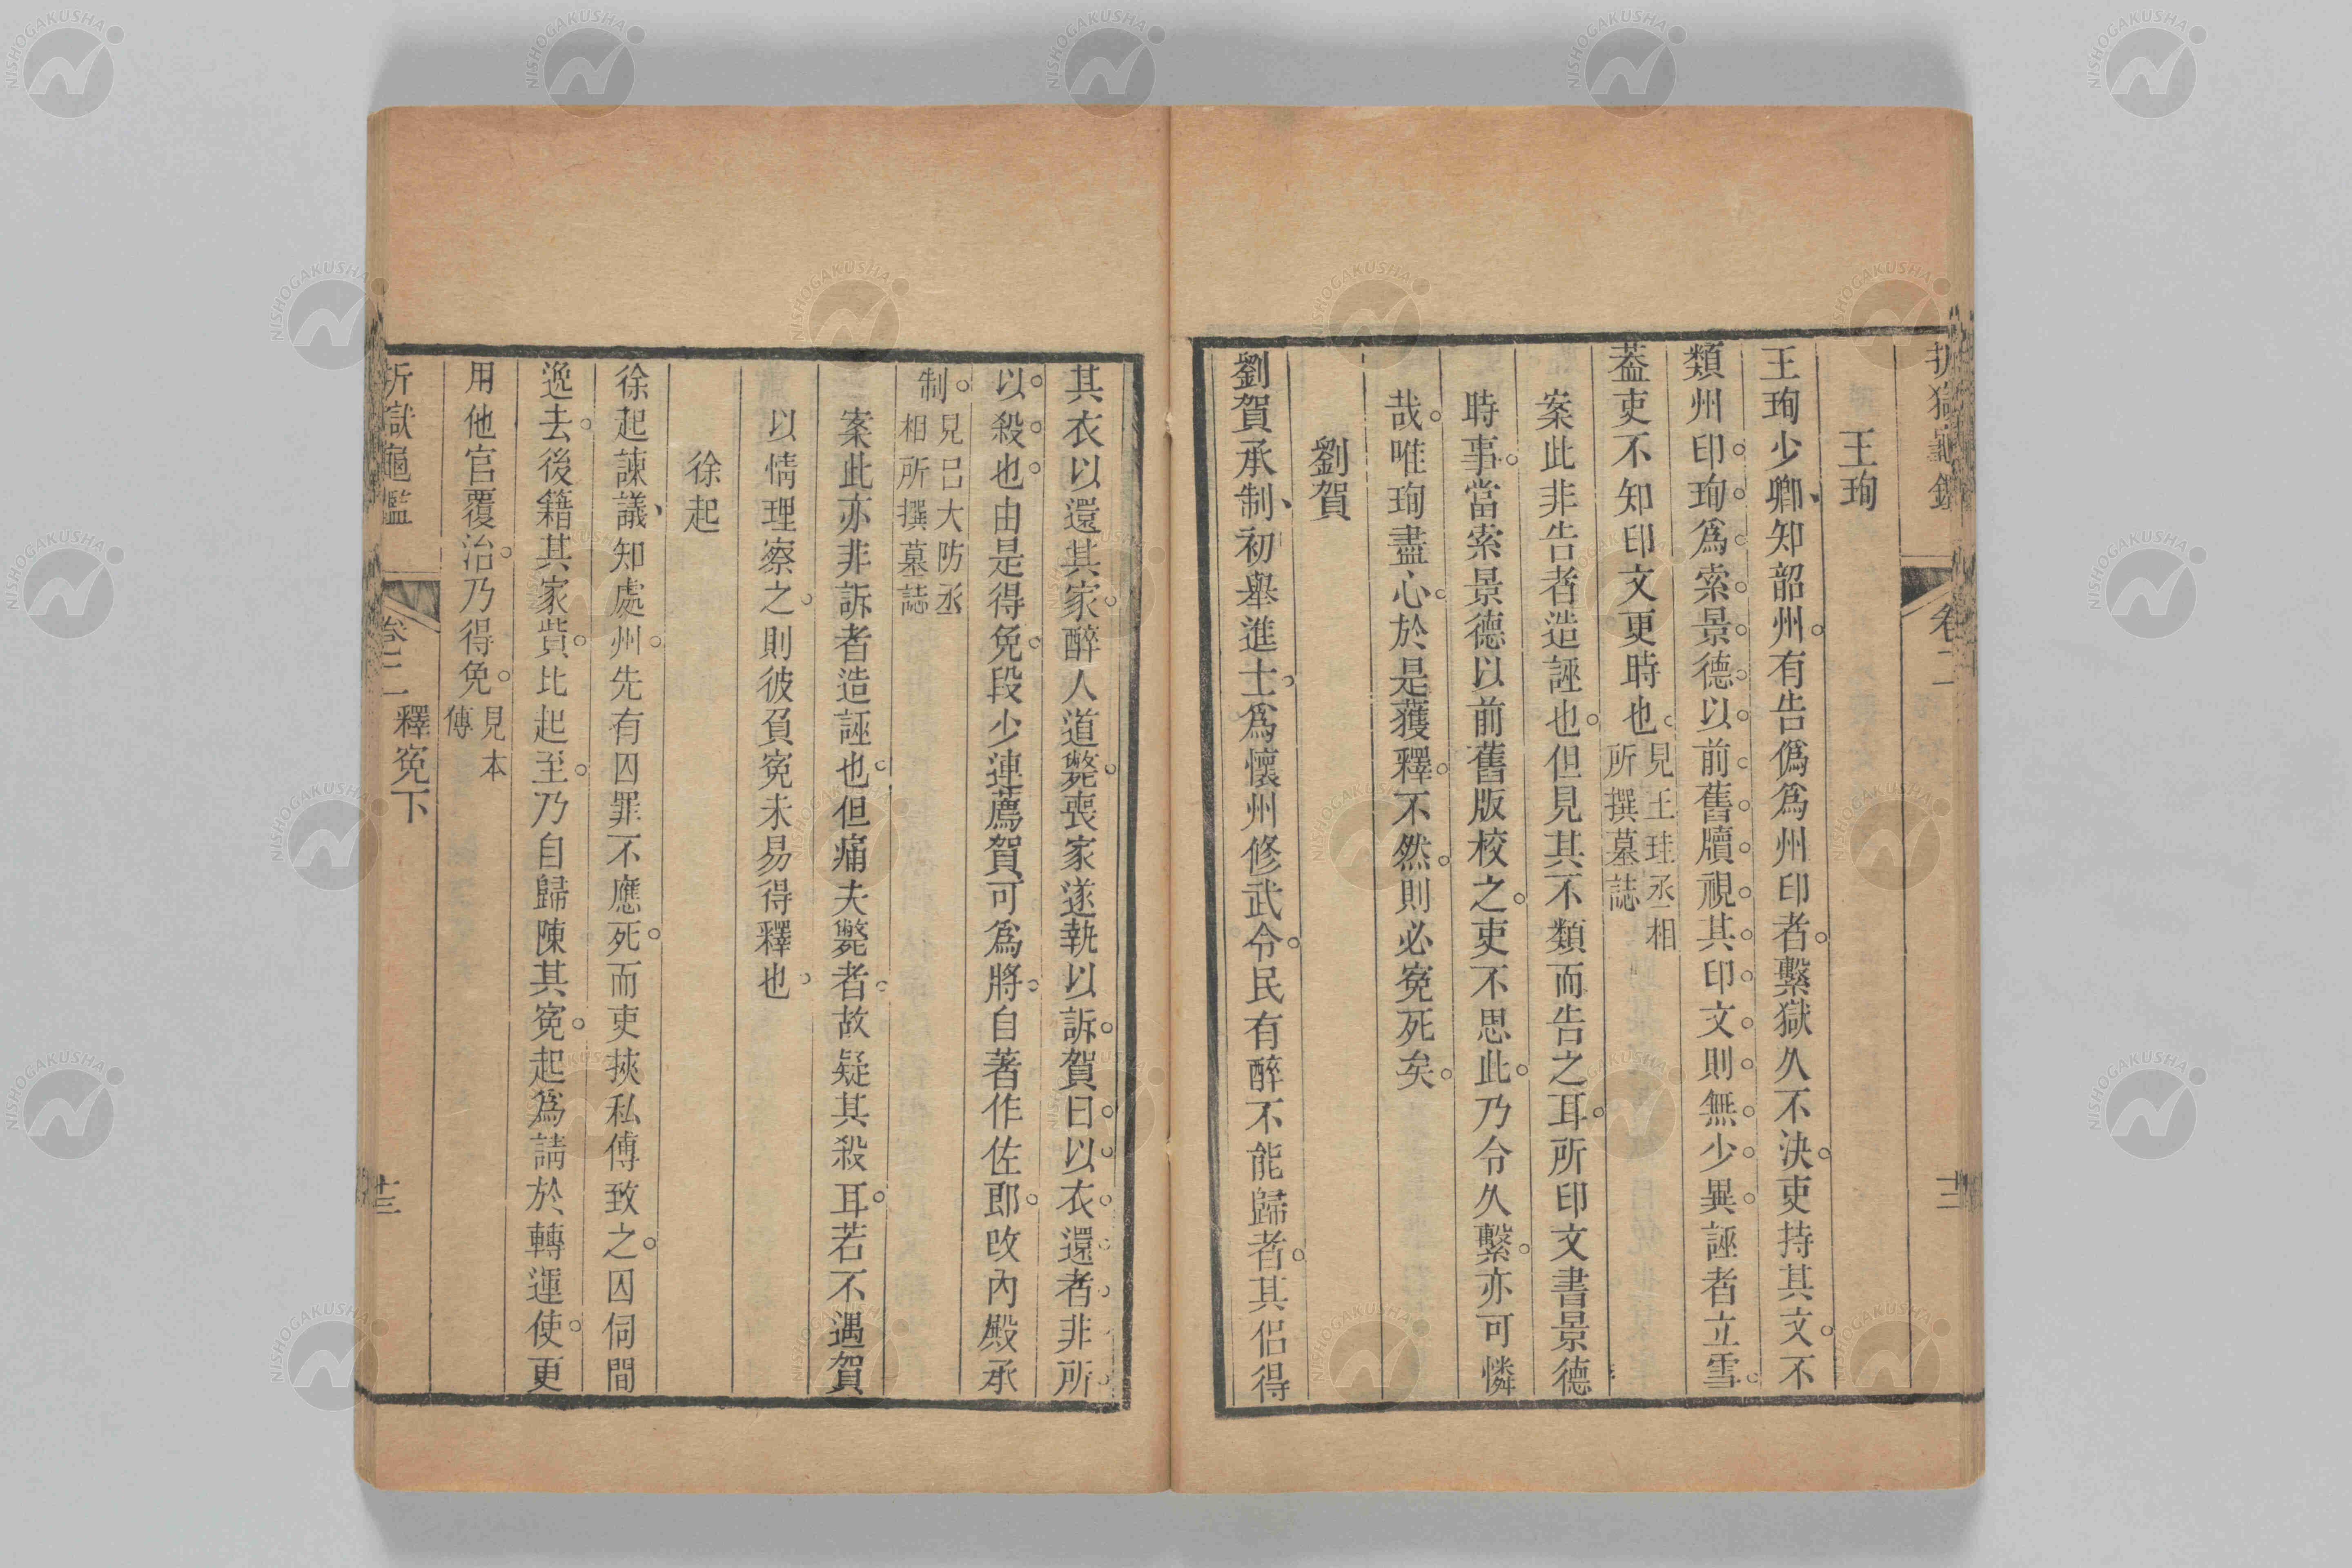 折獄龜鑑
卷二
王珣
王珣少卿、知韶州。有告僞爲州印者。繫獄久不決。吏持其文。不
類州印。珣。爲。索。景。德。以。前。舊。牘。視。其。印。文。則。無。少。異。誣者立雪。
葢吏不知印文更時也。見王珪丞相所撰墓誌
案此非告者造誣也。但見其不類而告之耳。所印文書景德
時事。當索景德以前舊版校之。吏不思此。乃令久繫。亦可憐
哉。唯珣盡心。於是獲釋。不然。則必寃死矣。
劉賀
劉賀承制、初舉進士。爲懷州修武令。民有醉不能歸者。其侶得
其衣以還其家。醉人道斃。喪家遂執以訴。賀曰。以。衣。還。者。非所。
以。殺。也。由是得免。段少連薦賀可爲將。自著作佐郎。改內殿承
制。見呂大防丞相所撰墓誌
案此亦非訴者造誣也。但痛夫斃者。故疑其殺耳。若不遇賀
以情理察之。則彼負寃未易得釋也。
徐起
徐起諫議、知處州。先有囚罪不應死。而吏挾私傅致之。囚伺間
逸去。後籍其家貲。比起至。乃自歸陳其寃。起爲請於轉運使。更
用他官覆治。乃得免。見本傳
折獄龜鑑
卷二 釋寃下
十三